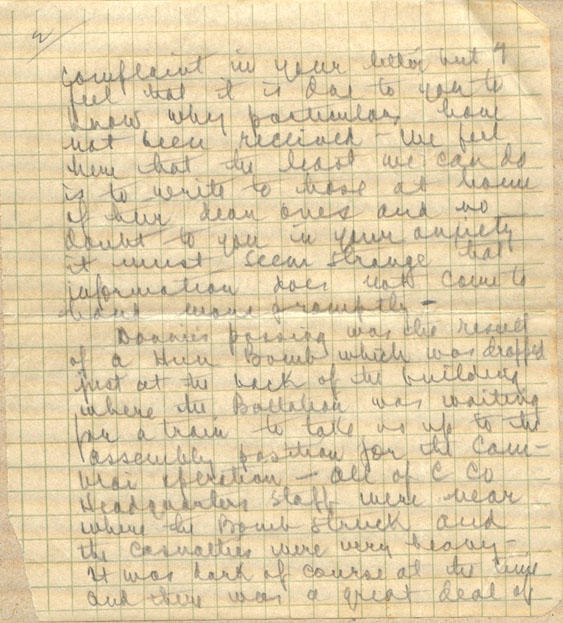 2
complaint in your letter but I
feel that it is due to you to
know why particulars have
not been received - We feel
here that the least we can do
is to write to those at home
of their dear ones and no
doubt to you in your anxiety
it must seem strange that
information does not come to
hand more promptly -
Donnie's passing was the result
of a Hun Bomb which was dropped
just at the back of the building
where the Battalion was waiting
for a train to take us up to the
assembly position for the Cam-
brai operation - all of C Co
Headquarters Staff were near
where the Bomb struck and
the casualties were very heavy -
It was dark of course at the time
and there was a great deal of